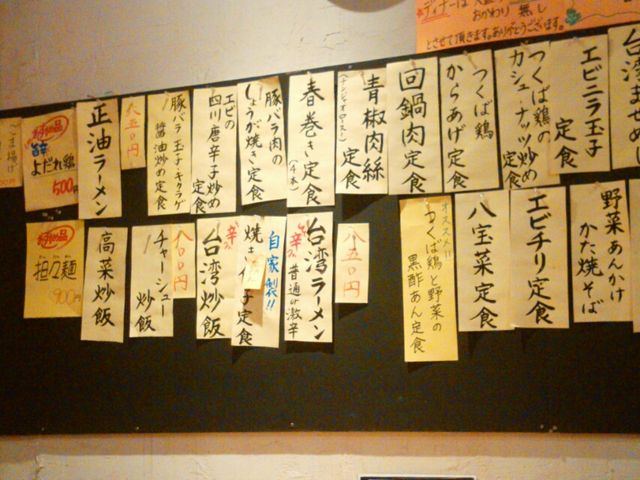 ディナーは
おかわり 無し
とさせて頂きます。ありがとうございます。
台湾まぜめし
エビニラ玉子
定食
つくば鶏の
カシューナッツ炒め
定食
つくば鶏
からあげ定食
回鍋肉定食
青椒肉絲
(チンジャオロース)
定食
春巻き定食
(4本)
豚バラ肉の
しょうが焼き定食
エビの
四川唐辛子炒め
定食
豚バラ 玉子 キクラゲ
醤油炒め定食
八五〇円
正油ラーメン
旨辛
よだれ鶏
500円
野菜あんかけ
かた焼そば
エビチリ定食
八宝菜定食
オススメ!!
つくば鶏と野菜の
黒酢あん定食
八五〇円
台湾ラーメン
普通or激辛
自家製!!
定食
台湾炒飯
八〇〇円
チャーシュー
炒飯
高菜炒飯
担々麺
900円